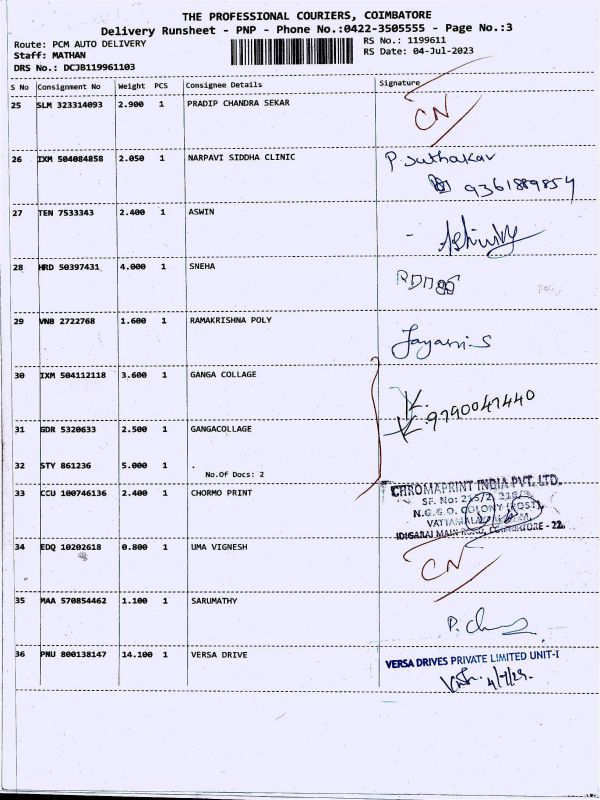 THE PROFESSIONAL COURIERS, COIMBATORE
Delivery Runsheet - PNP - Phone No.:0422-3505555 - Page No.:3
Route: PCM AUTO DELIVERY RS No.: 1199611
Staff: MATHAN RS Date: 04-Jul-2023
DRS No.: DCJB119961103
S No Consignment No Weight PCS Consignee Details Signature
25 SLM 323314093 2.900 1 PRADIP CHANDRA SEKAR CN
26 IXM 504084858 2.050 1 NARPAVI SIDDHA CLINIC P. Suthakar
9361889854
27 TEN 7533343 2.400 1 ASWIN
28 HRD 50397431 4.000 1 SNEHA
29 VNB 2722768 1.600 1 RAMAKRISHNA POLY
30 IXM 504112118 3.600 1 GANGA COLLAGE
9790047440
31 GDR 5320633 2.500 1 GANGACOLLAGE
32 STY 861236 5.000 1 .
No.Of Docs: 2
33 CCU 100746136 2.400 1 CHORMO PRINT CHROMAPRINT INDIA PVT. LTD.
SF. No: 215/2, 216/3
N.G.G.O. COLONY (POST),
IDIGARAI MAIN ROAD, COIMBATORE - 22.
34 EDQ 10202618 0.800 1 UMA VIGNESH CN
35 MAA 570854462 1.100 1 SARUMATHY
36 PNU 800138147 14.100 1 VERSA DRIVE VERSA DRIVES PRIVATE LIMITED UNIT-I
4/7/23.